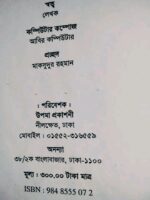 স্বত্ব
লেখক
কম্পিউটার কম্পোজ
আবির কম্পিউটার
প্রচ্ছদ
মাকসুদুর রহমান
: পরিবেশক :
উপমা প্রকাশনী
নীলক্ষেত, ঢাকা
মোবাইল : ০১৫৫২-৩১৬৫৫৯
অনন্যা
৩৮/২ক বাংলাবাজার, ঢাকা-১১০০
মূল্য : ৩০০.০০ টাকা মাত্র
ISBN : 984 8555 07 2